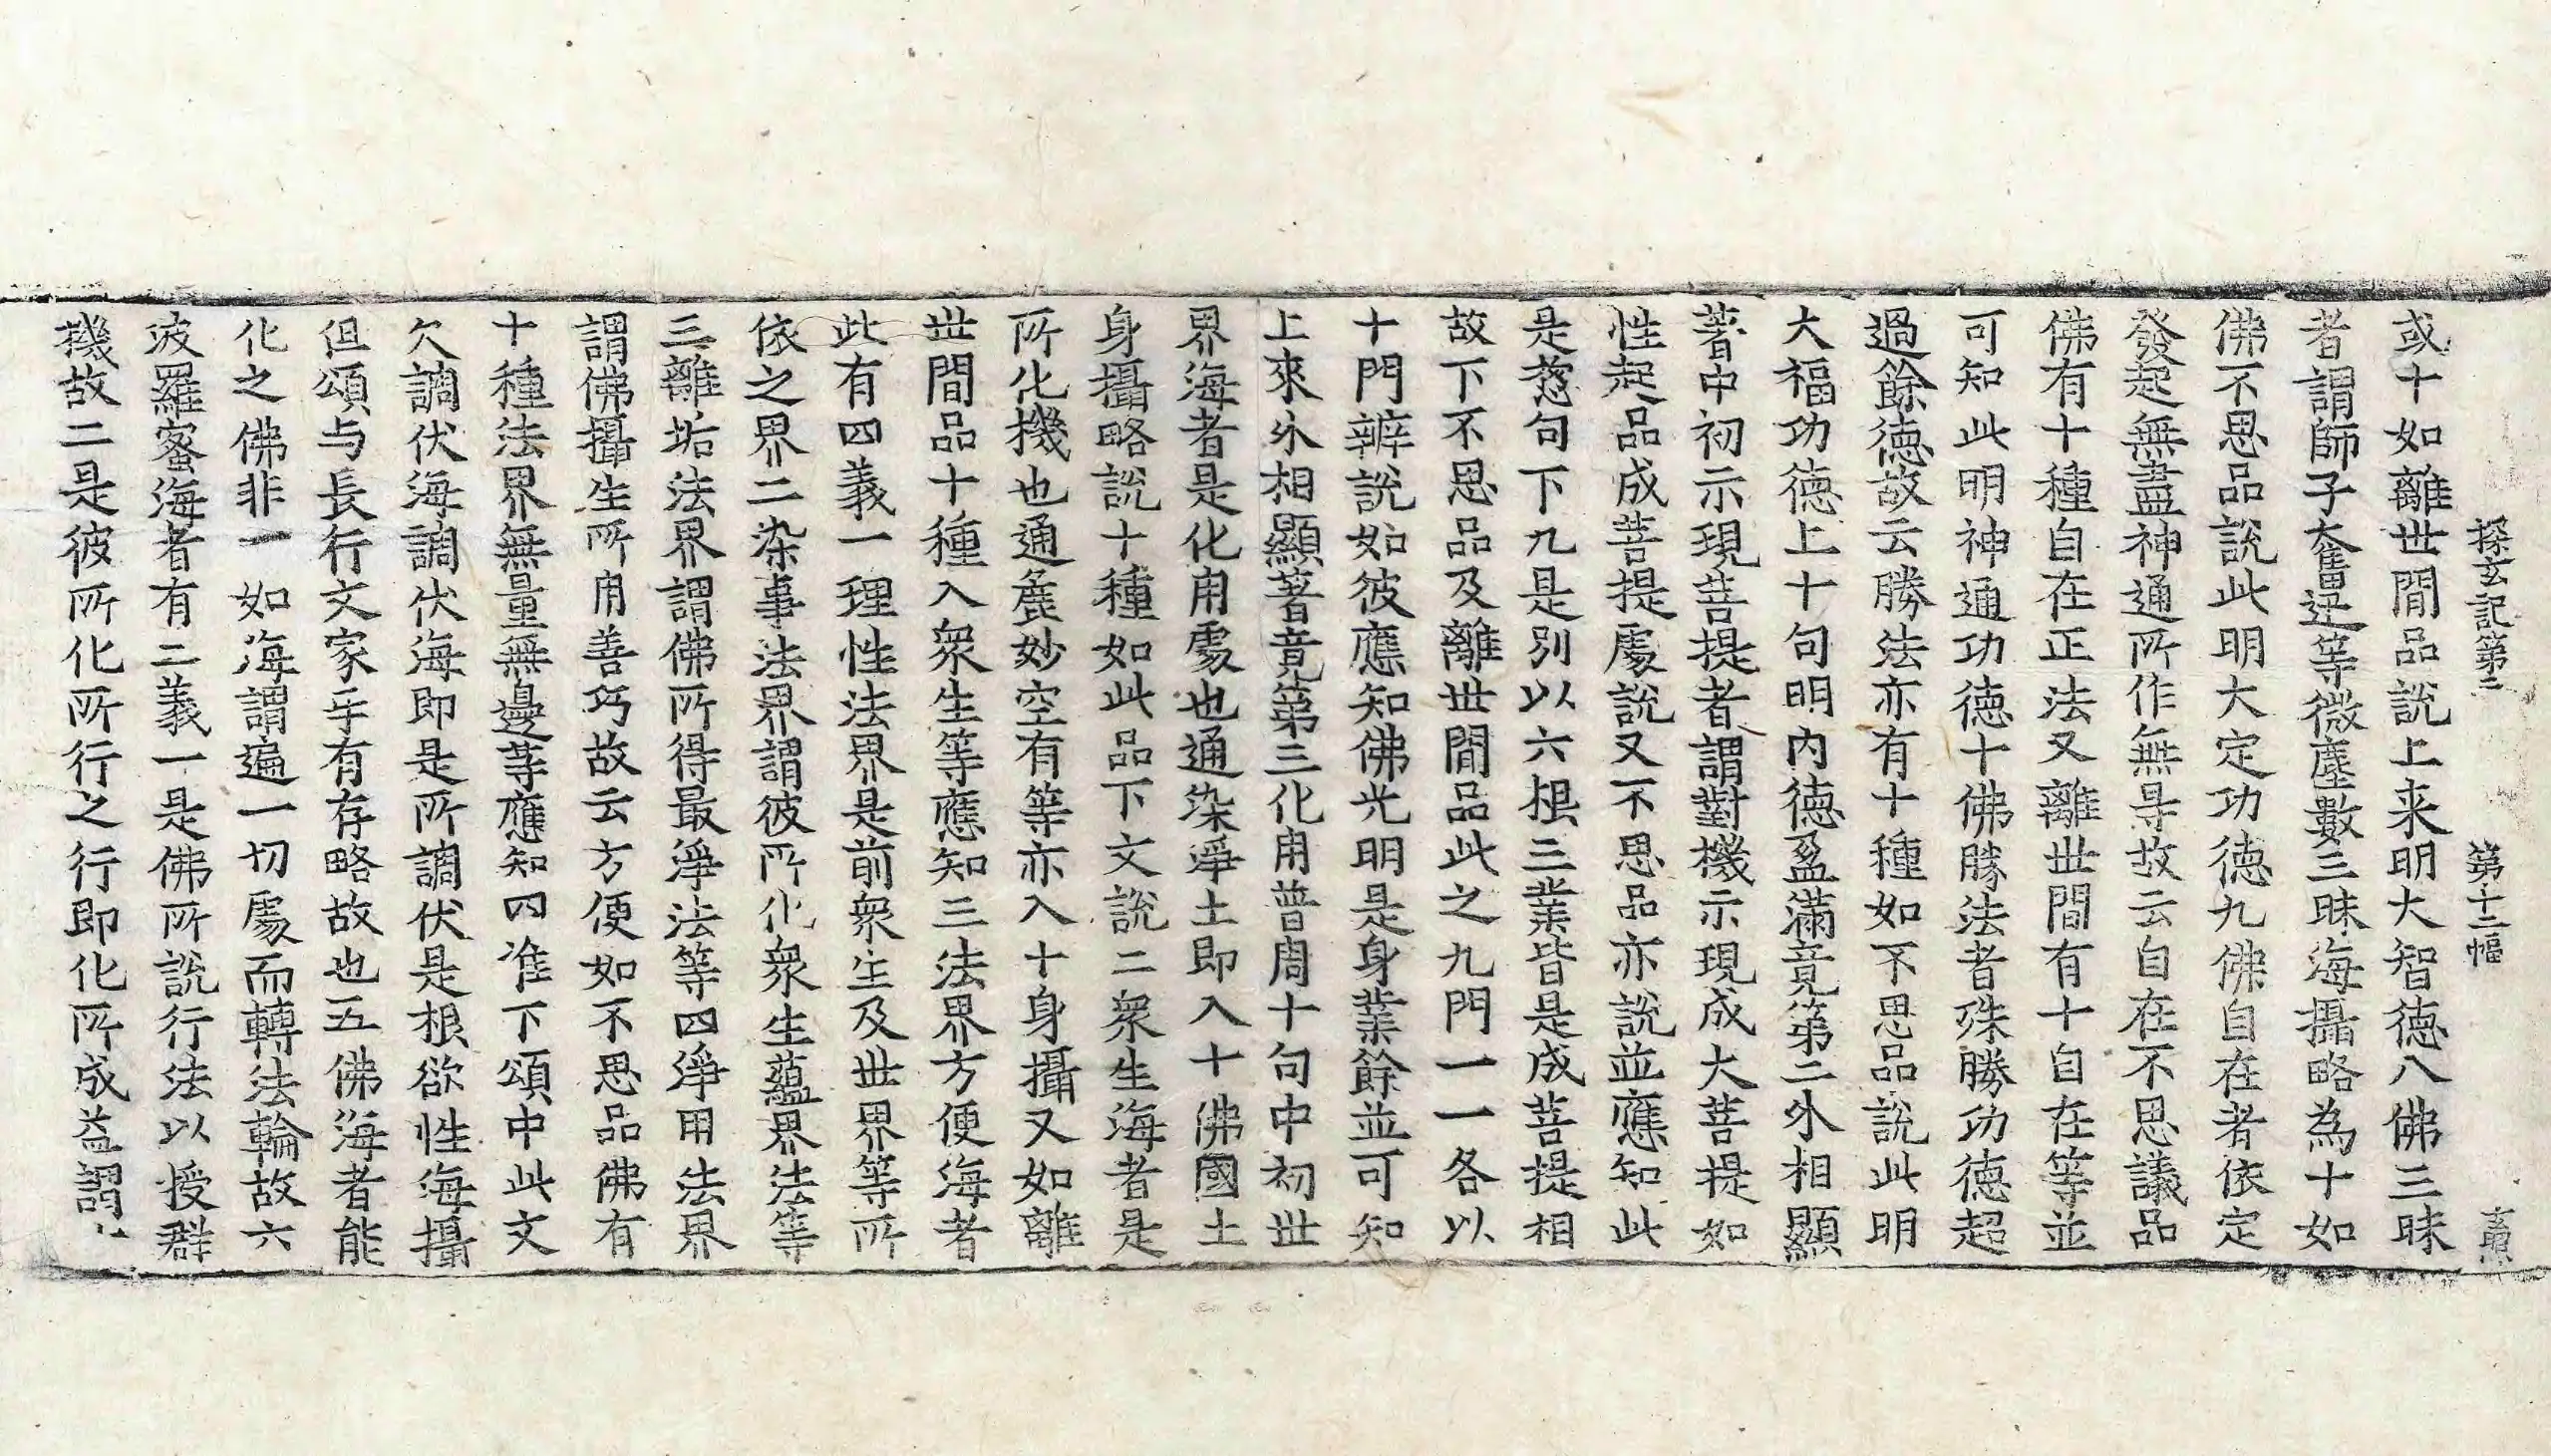 探玄記第三 第十二幅
或十如離世間品說上来明大智德八佛三昧
者謂師子奮迅等微塵數三昧海攝略為十如
佛不思品說此明大定功德九佛自在者依定
發起無盡神通所作無㝵故云自在不思議品
佛有十種自在正法又離世間有十自在等並
可知此明神通功德十佛勝法者殊勝功德超
過餘德故云勝法亦有十種如不思品說此明
大福功德上十句明內德盈滿竟第二外相顯
著中初示現菩提者謂對機示現成大菩提如
性起品成菩提處說又不思品亦說並應知此
是惣句下九是別以六根三業皆是成菩提相
故下不思品及離世間品此之九門一一各以
十門辨說如彼應知佛光明是身業餘並可知
上來外相顯著竟第三化用普周十句中初世
界海者是化用處也通染淨土即入十佛國土
身攝略說十種如此品下文說二衆生海者是
所化機也通麁妙空有等亦入十身攝又如離
世間品十種入衆生等應知三法界方便海者
此有四義一理性法界是前衆生及世界等所
依之界二染事法界謂彼所化衆生蘊界法等
三離垢法界謂佛所得最淨法等四淨用法界
謂佛攝生所用善巧故云方便如不思品佛有
十種法界無量無邊等應知四准下頌中此文
欠調伏海調伏海即是所調伏是根欲性海攝
但頌与長行文家乎有存略故也五佛海者能
化之佛非一如海謂遍一切處而轉法輪故六
波羅蜜海者有二義一是佛所說行法以授群
機故二是彼所化所行之行即化所成益謂